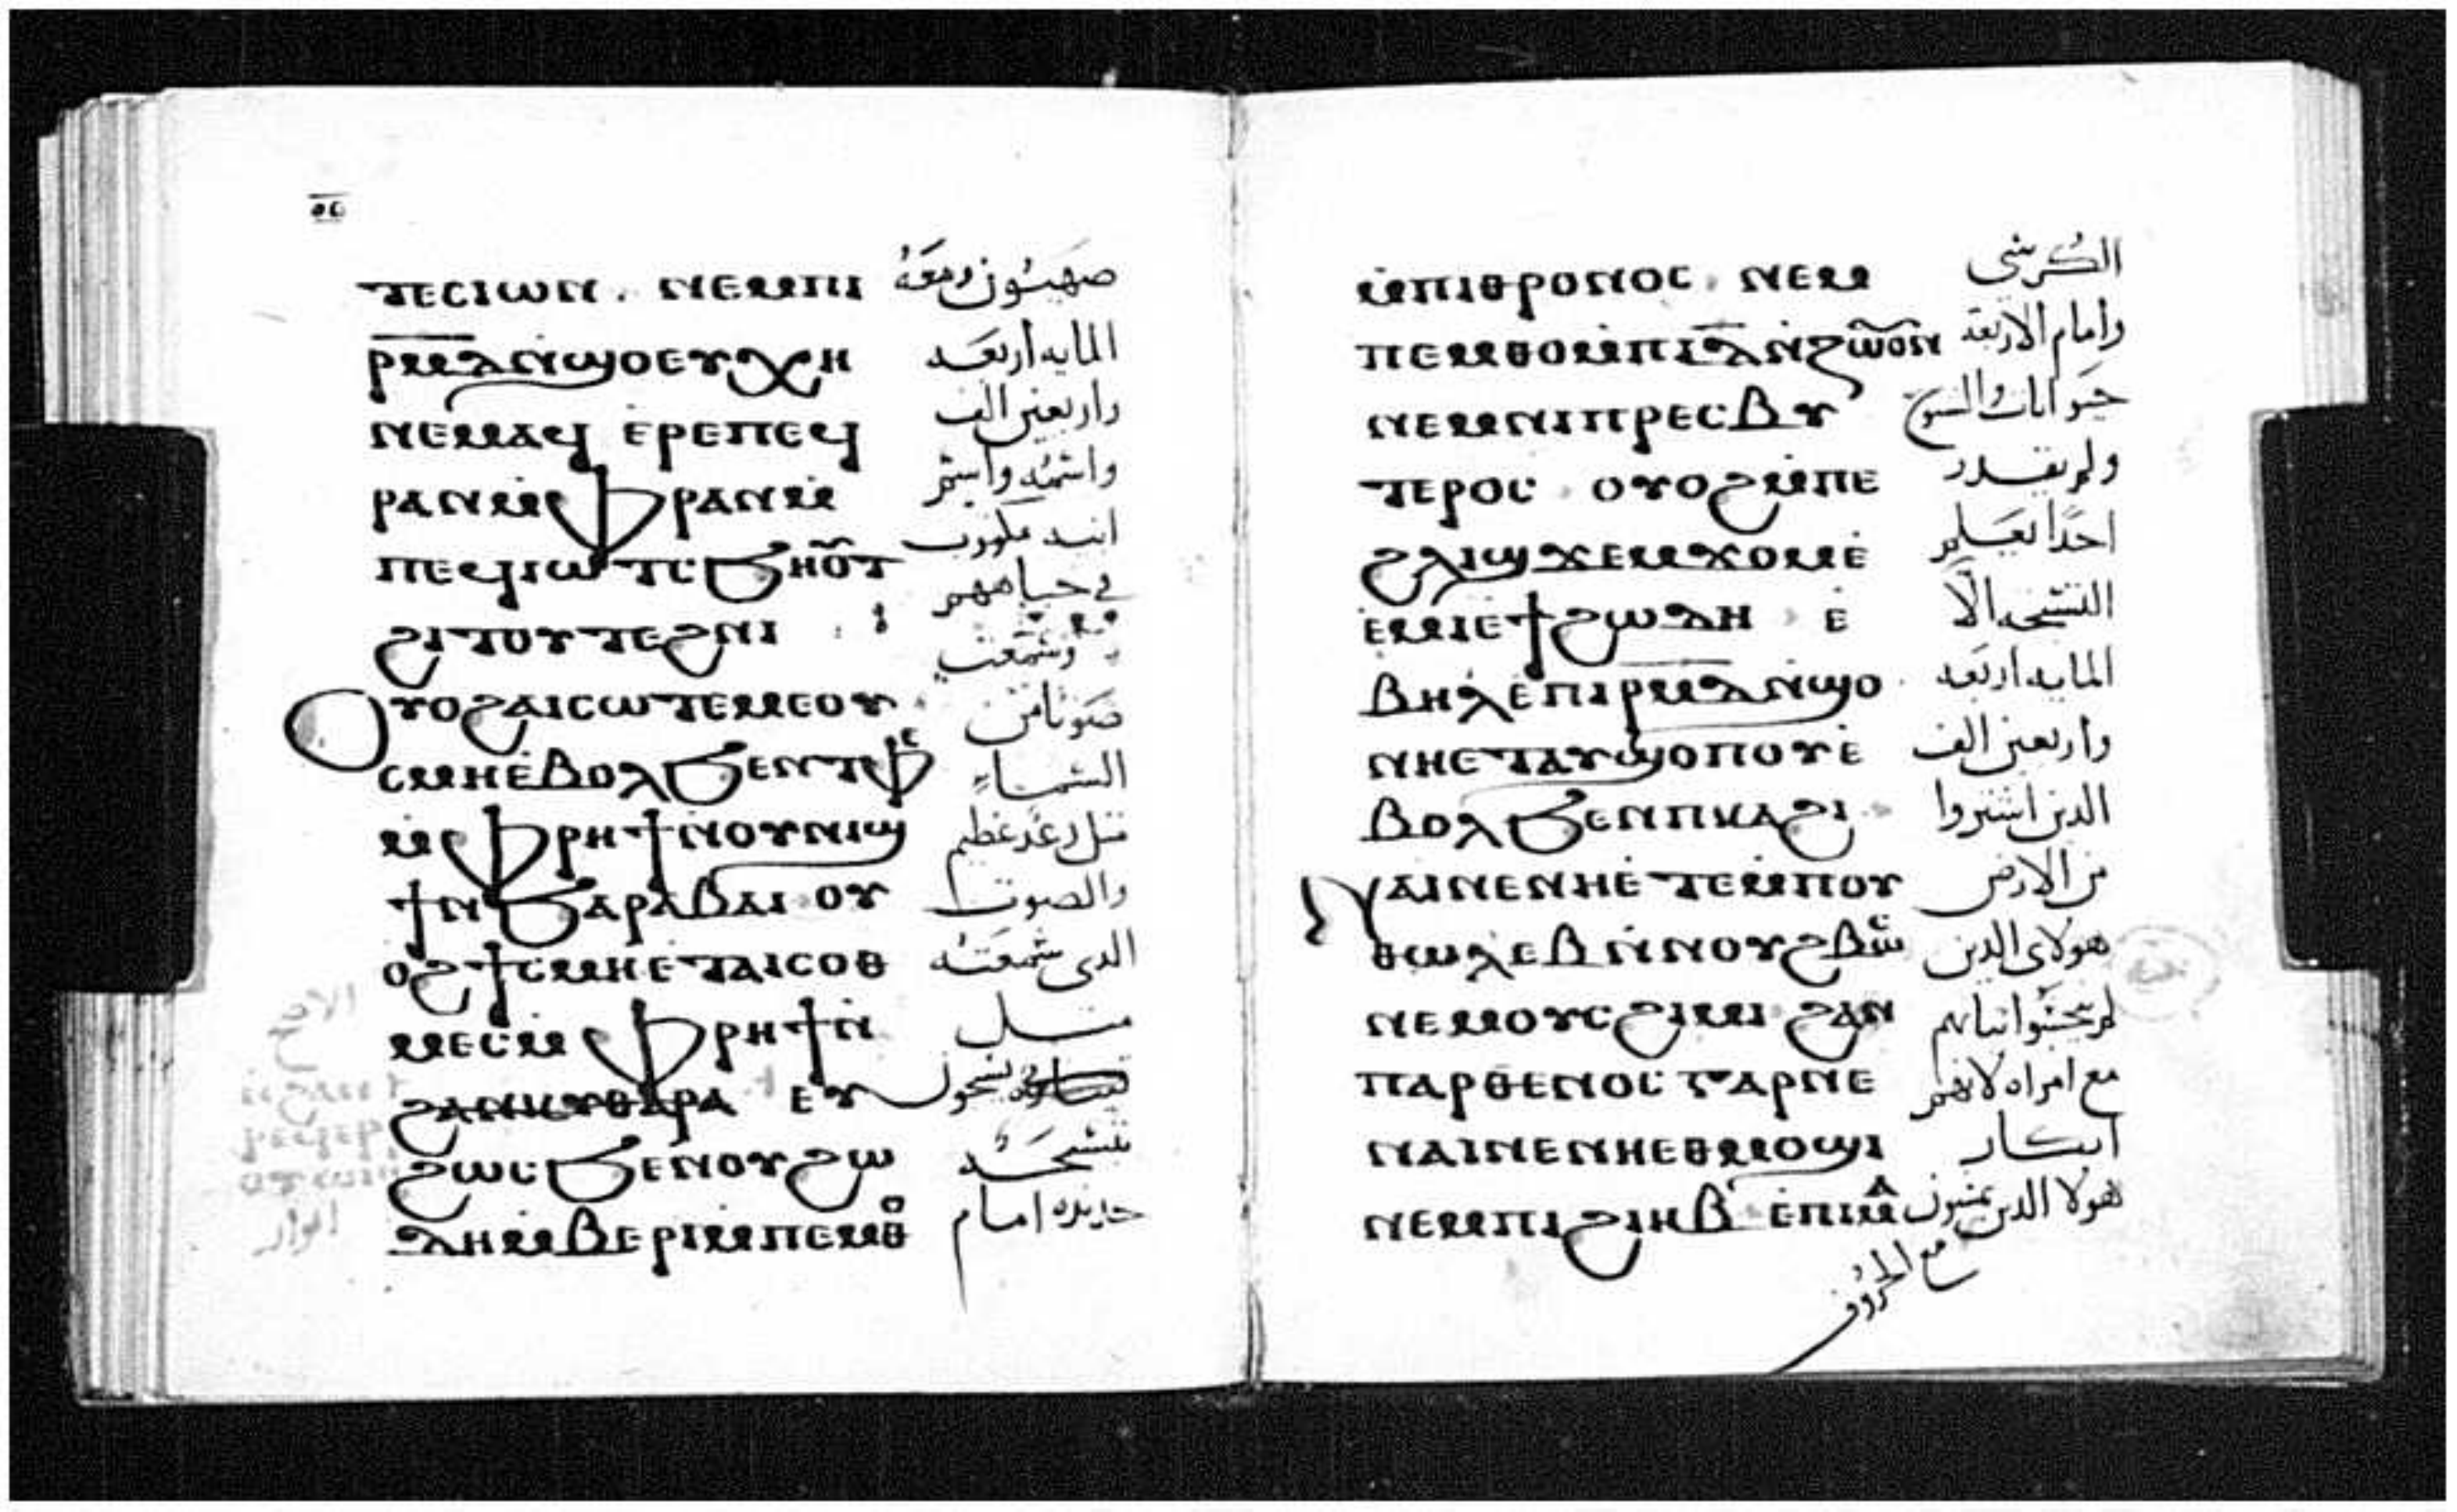 ⲧⲉⲥⲓⲱⲛ . ⲛⲉⲙⲡⲓ صهيون ومعه
ⲣ̅ⲙ̅ⲇ̅ⲛ̀ϣⲟⲉⲩⲭⲏ المايه اربعه
ⲛⲉⲙⲁϥ ⲉ̀ⲣⲉⲡⲉϥ واربعين الف
ⲣⲁⲛⲙ̀ⲫⲣⲁⲛⲙ̀ واسمه واسم
ⲡⲉϥⲓⲱⲧⲥϧⲏⲟⲩⲧ ابيه مكتوب
ϩⲓⲧⲟⲩⲧⲉϩⲛⲓ في جباههم
وسمعت
ⲟⲩⲟϩⲁⲓⲥⲱⲧⲉⲙⲉⲟⲩ صوتا من
ⲥⲙⲏⲉ̀ⲃⲟⲗϧⲉⲛⲧⲫⲉ السماء
ⲙ̀ⲫⲣⲏϯⲛⲟⲩⲛⲓϣ مثل رعد عظيم
ϯⲛ̀ϧⲁⲣⲁⲃⲁⲓ ⲟⲩ والصوت
ⲟϩϯⲥⲙⲏⲉⲧⲁⲓⲥⲟⲑ الدى سمعته
ⲙⲉⲥⲙ̀ⲫⲣⲏϯⲛ̀ مثل
ϩⲁⲛⲕⲩⲑⲁⲣⲁ ⲉⲩ
ϩⲱⲥϧⲉⲛⲟⲩϩⲱ بتسبحه
ⲇⲏⲙ̀ⲃⲉⲣⲓⲙ̀ⲡⲉⲙⲑⲟ جديده امام
ⲙ̀ⲡⲓⲑⲣⲟⲛⲟⲥ ⲛⲉⲙ الكرسي
ⲡⲉⲙⲑⲟⲙ̀ⲡⲓⲇ̅ⲛ̀ⲍⲱⲟⲛ وامام الاربعه
ⲛⲉⲙⲛⲓⲡⲣⲉⲥⲃⲩ حيوانات والشيوخ
ⲧⲉⲣⲟⲥ ⲟⲩⲟϩⲙ̀ⲡⲉ ولم يقدر
ϩⲗⲓϣϫⲉⲙϫⲟⲙⲉ̀ احدا يعلم
ⲉ̀ⲙⲓⲉ̀ϯϩⲱⲇⲏ ⲉ̀ التسبحه الا
ⲃⲏⲗⲉ̀ⲡⲓⲣ̅ⲙ̅ⲇ̅ⲛ̀ϣⲟ المايه اربعه
ⲛⲏⲉⲧⲁⲩϣⲟⲡⲟⲩⲉ̀ واربعين الف
ⲃⲟⲗϧⲉⲛⲡⲕⲁϩⲓ الدين اشتروا
ⲛⲁⲓⲛⲉⲛⲏⲉ̀ⲧⲉⲙ̀ⲡⲟⲩ من الارض
ⲑⲱⲗⲉⲃⲛ̀ⲛⲟⲩϩⲃⲱⲥ هولاى الدين
ⲛⲉⲙⲟⲩⲥϩⲓⲙⲓ ϩⲁⲛ لم ينجسوا ثيابهم
ⲡⲁⲣⲑⲉⲛⲟⲥⲅⲁⲣⲛⲉ مع امراه لانهم
ⲛⲁⲓⲛⲉⲛⲏⲉⲑⲙⲟϣⲓ ابكار
ⲛⲉⲙⲡⲓϩⲓⲏⲃ ⲉ̀ⲡⲓⲙⲁ هولا الدين يمشون
مع الخروف